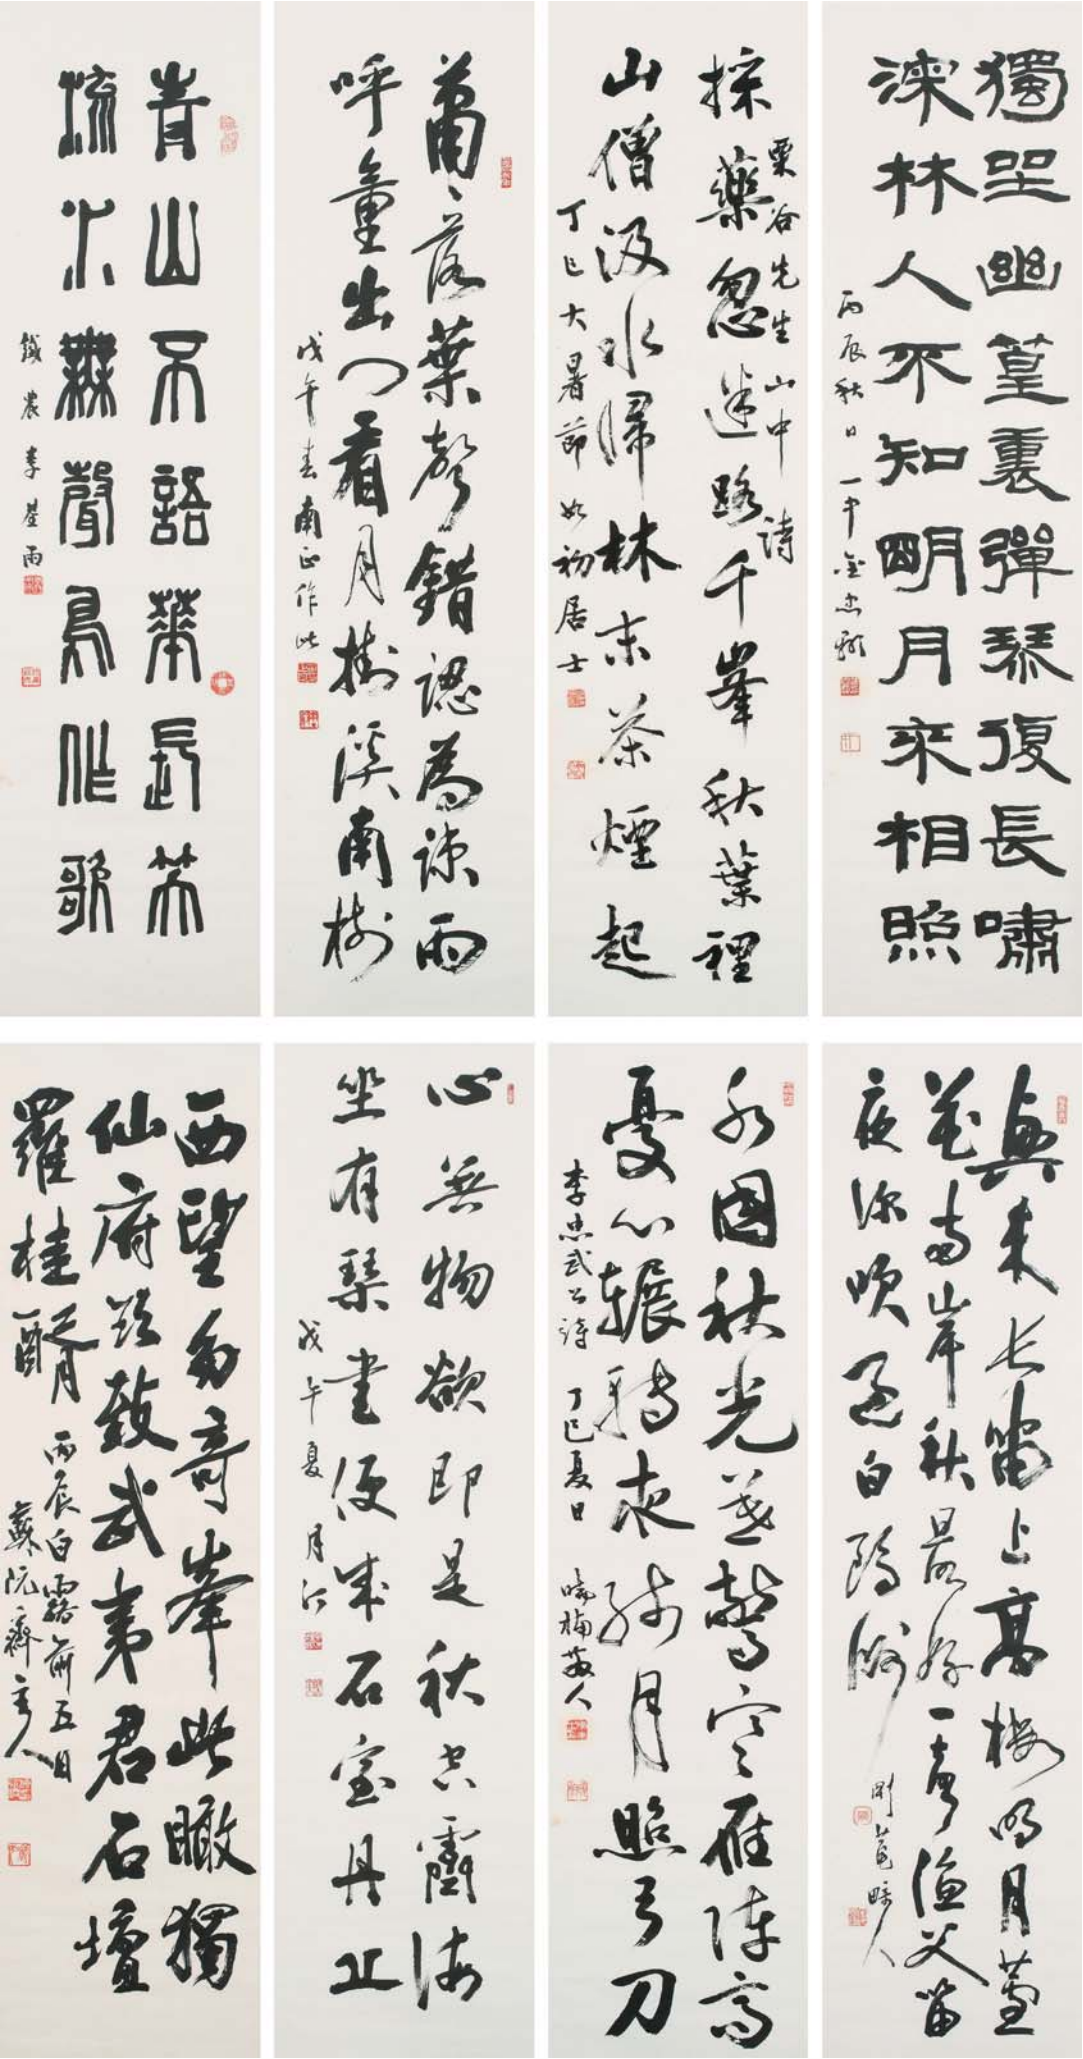 獨坐幽篁裏彈琴復長嘯
深林人不知明月來相照
丙辰秋日 一中金忠顯
採藥忽迷路千峯秋葉裡
栗谷先生山中詩
山僧汲水歸林末茶煙起
丁巳大暑節 如初居士
蕭〻落葉聲錯認為疎雨
呼童出門看月掛溪南樹
戊午春 南正作此
青山不語華長笑
流水無聲鳥作歌
鐵農李基雨
興來長笛上高樓明月蘆
花兩岸秋最好一聲漁父笛
夜深吹過白鷗洲
剛菴畸人
水國秋光暮驚寒雁陣高
憂心輾轉夜殘月照弓刀
李忠武公詩 丁巳夏日
心無物欲即是秋空霽海
坐有琴書便成石室丹丘
戊午夏 月汀
西望多奇峯此瞰獨
仙府欲致武夷君石壇
羅桂醑
丙辰白露前五日
蘇阮齋主人